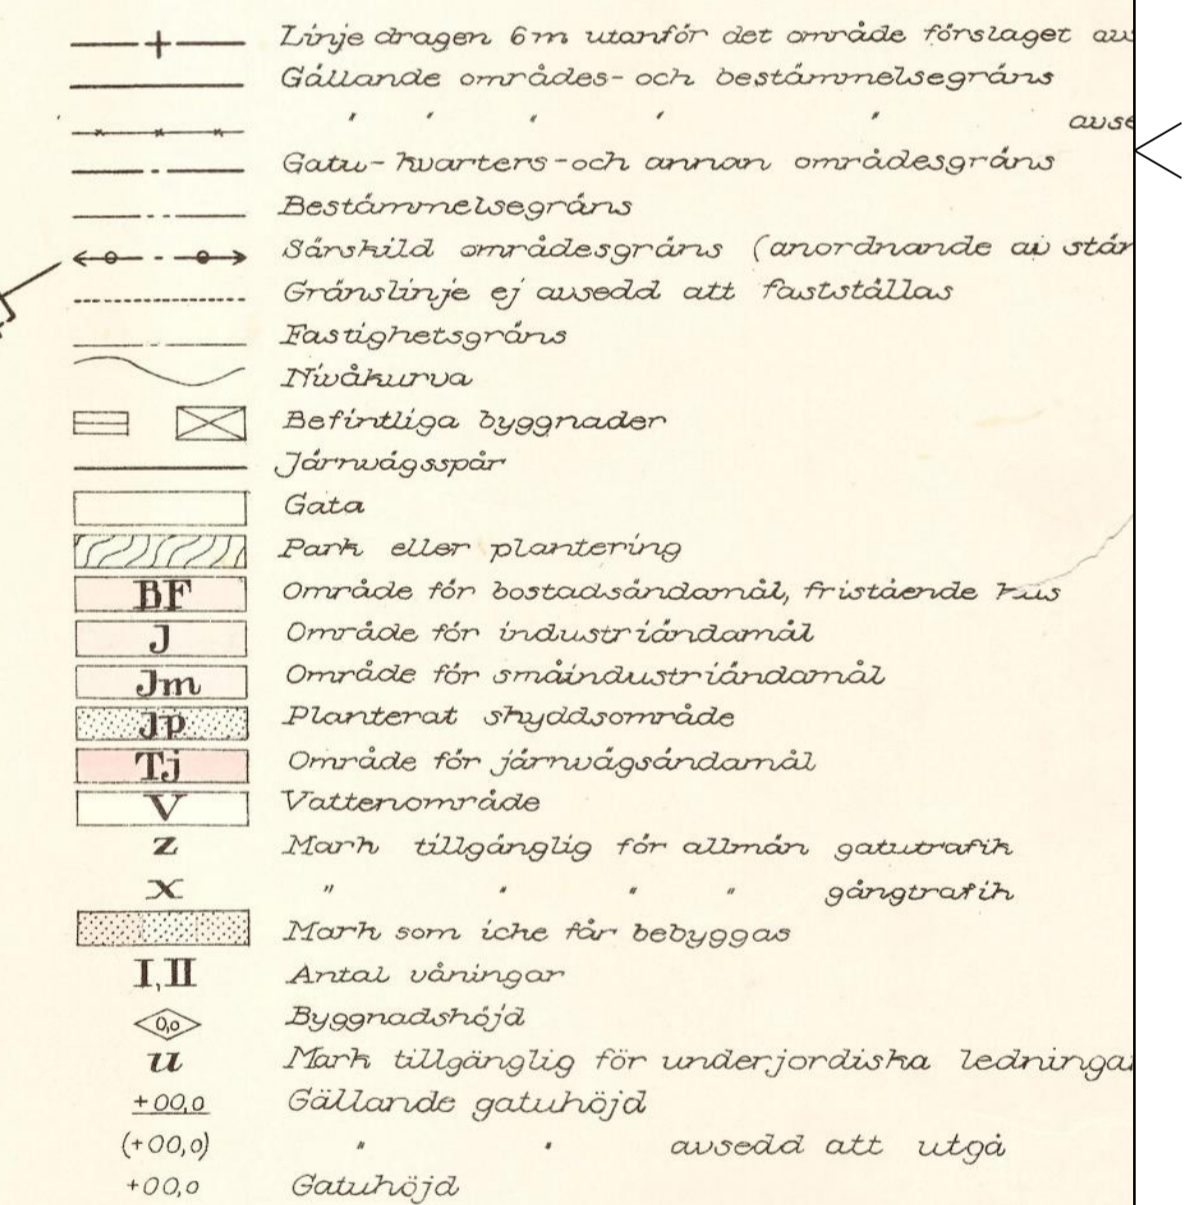 Linje dragen 6m utanför det område förslaget
Gällande områdes- och bestämmelsegräns
" " " " "
Gatu- kvarters- och annan områdesgräns
Bestämmelsegräns
Särskild områdesgräns (anordnande av
Gränslinje ej avsedd att fastställas
Fastighetsgräns
Nivåkurva
Befintliga byggnader
Järnvägsspår
Gata
Park eller plantering
BF Område för bostadsändamål, fristående hus
J Område för industriändamål
Jm Område för småindustriändamål
Jp Planterat skyddsområde
Tj Område för järnvägsändamål
V Vattenområde
z Mark tillgänglig för allmän gatutrafik
x " " " " gångtrafik
Mark som icke får bebyggas
I, II Antal våningar
0,0 Byggnadshöjd
u Mark tillgänglig för underjordiska
+00,0 Gällande gatuhöjd
(+00,0) " " avsedd att utgå
+00,0 Gatuhöjd